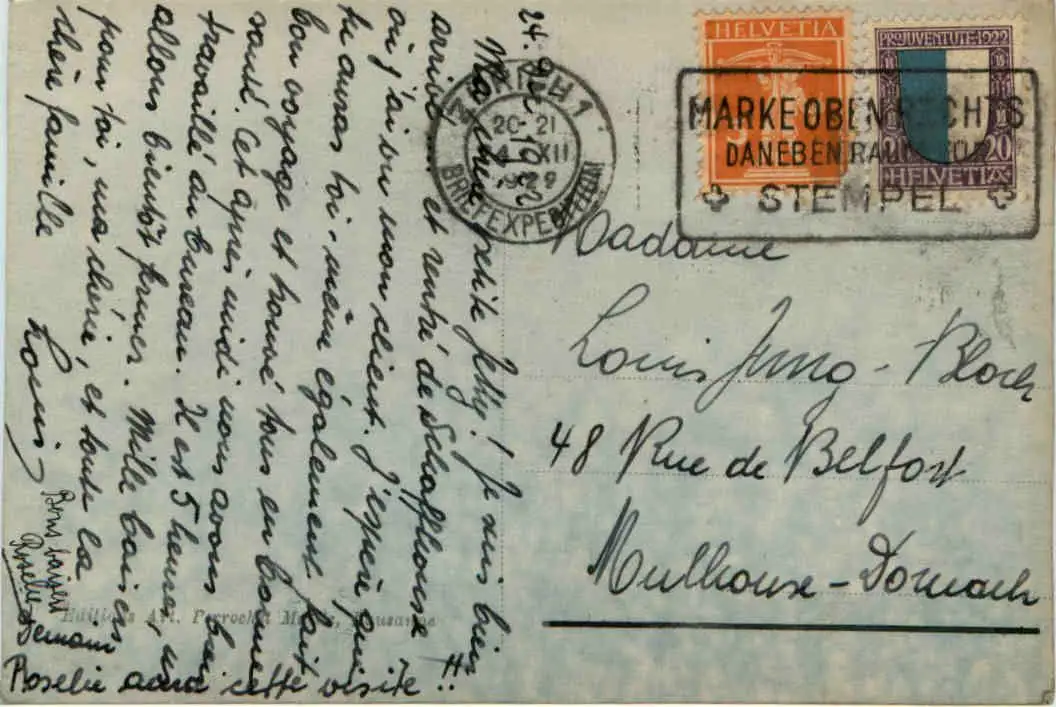 24. 
Ma chère petite Jetty! Je suis bien
arrivé et rentré de Schaffhouse
où j'ai vu mon client. J'espère que
tu auras toi-même également fait
bon voyage et trouvé tous en bonne
santé. Cet après midi nous avons bien
travaillé au bureau. Il est 5 heures, n/
allons bientôt fermer. Mille baisers
pour toi, ma chérie, et toute la
chère famille
Louis
Bons baisers
Roselie
Demain
Roselie aura cette visite!!
Editions Art. Perrochet Lausanne
HELVETIA
PRO JUVENTUTE·1922
20 20
HELVETIA
ZÜRICH 1
20-21
XII
1922
BRIEFEXPEDITION
MARKE OBEN RECHTS
DANEBEN RAUM FÜR
STEMPEL
Madame
Louis Jung-Bloch
48 Rue de Belfort
Mulhouse-Dornach